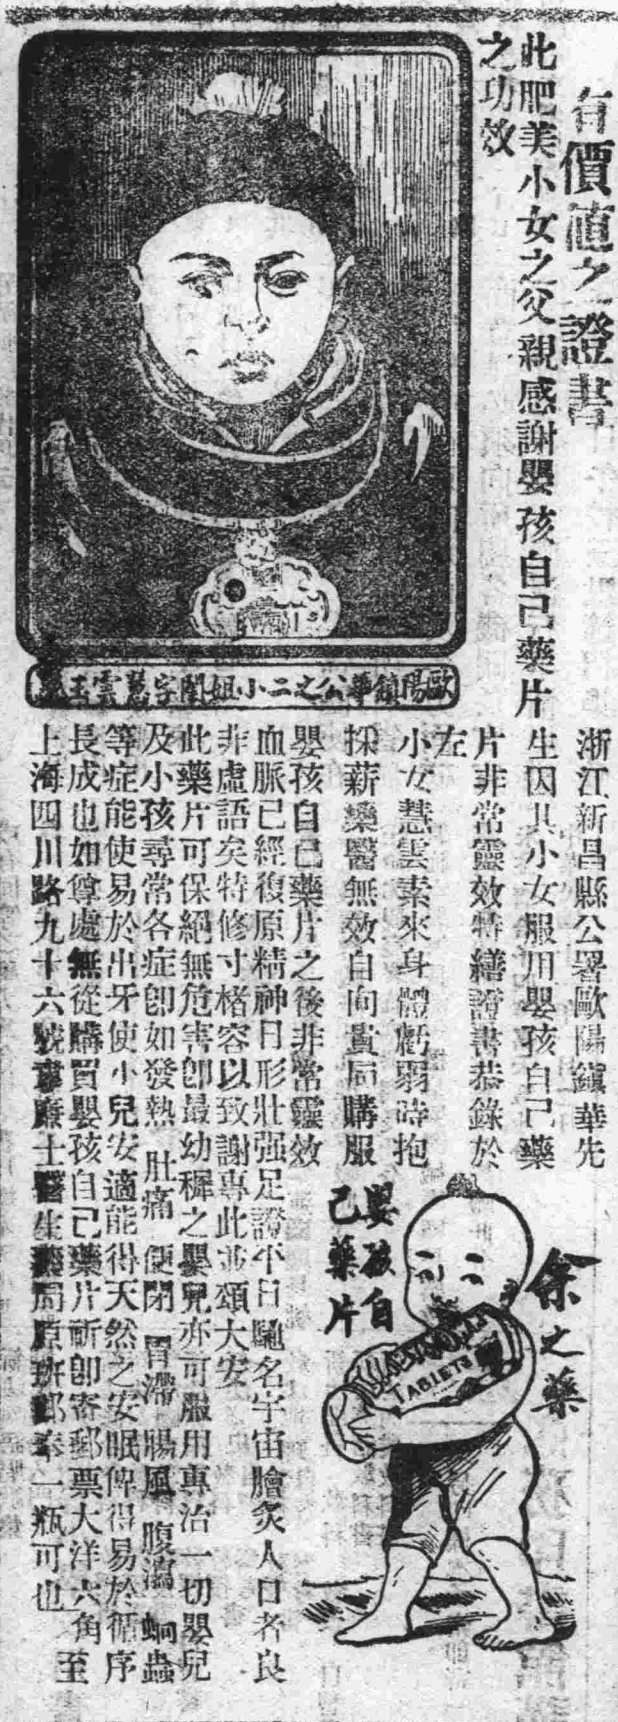 有價値之證書
此肥美小女之父親感謝嬰孩自己藥片
之功效
歐陽鎮華公之二小姐閨字慧雲玉
浙江新昌縣公署歐陽鎮華先
生因其小女服用嬰孩自己藥
片非常靈效特繕證書恭錄於
左
小女慧雲素來身體虧弱時抱
採薪藥醫無效自向貴局購服
嬰孩自己藥片之後非常靈效
血脈已經復原精神日形壯强足證平日馳名宇宙膾炙人口者良
非虛語矣特修寸楮容以致謝專此並頌大安
此藥片可保絕無危害卽最幼穉之嬰兒亦可服用專治一切嬰兒
及小孩尋常各症卽如發熱 肚痛 便閉 胃滯 腸風 腹瀉 蛔蟲
等症能使易於出牙使小兒安適能得天然之安眠俾得易於循序
長成也如尊處無從購買嬰孩自己藥片祈卽寄郵票大洋六角至
上海四川路九十六號韋廉士醫生藥局原班郵奉一瓶可也
余之藥
嬰孩自
己藥片
TABLETS